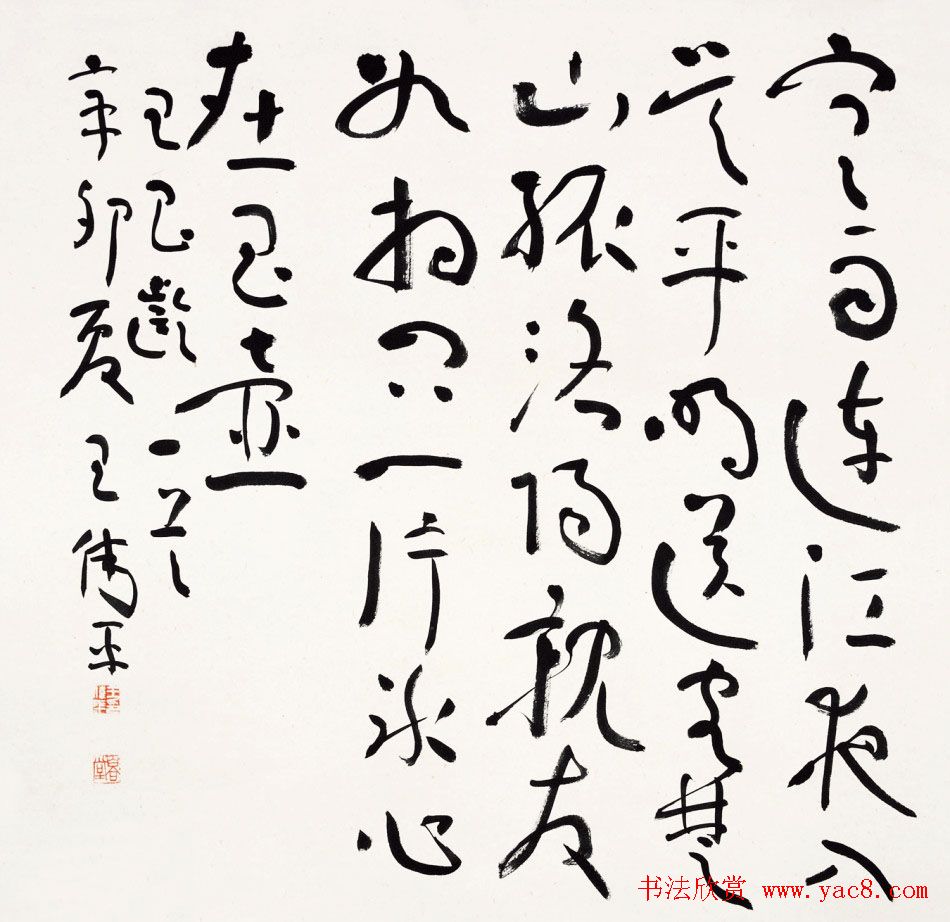 寒雨連江夜入
吳平明送客楚
山孤洛陽親友
如相問一片冰心
在玉壺
王昌齡一首
辛卯夏王偉平
书法欣赏 www.yac8.com